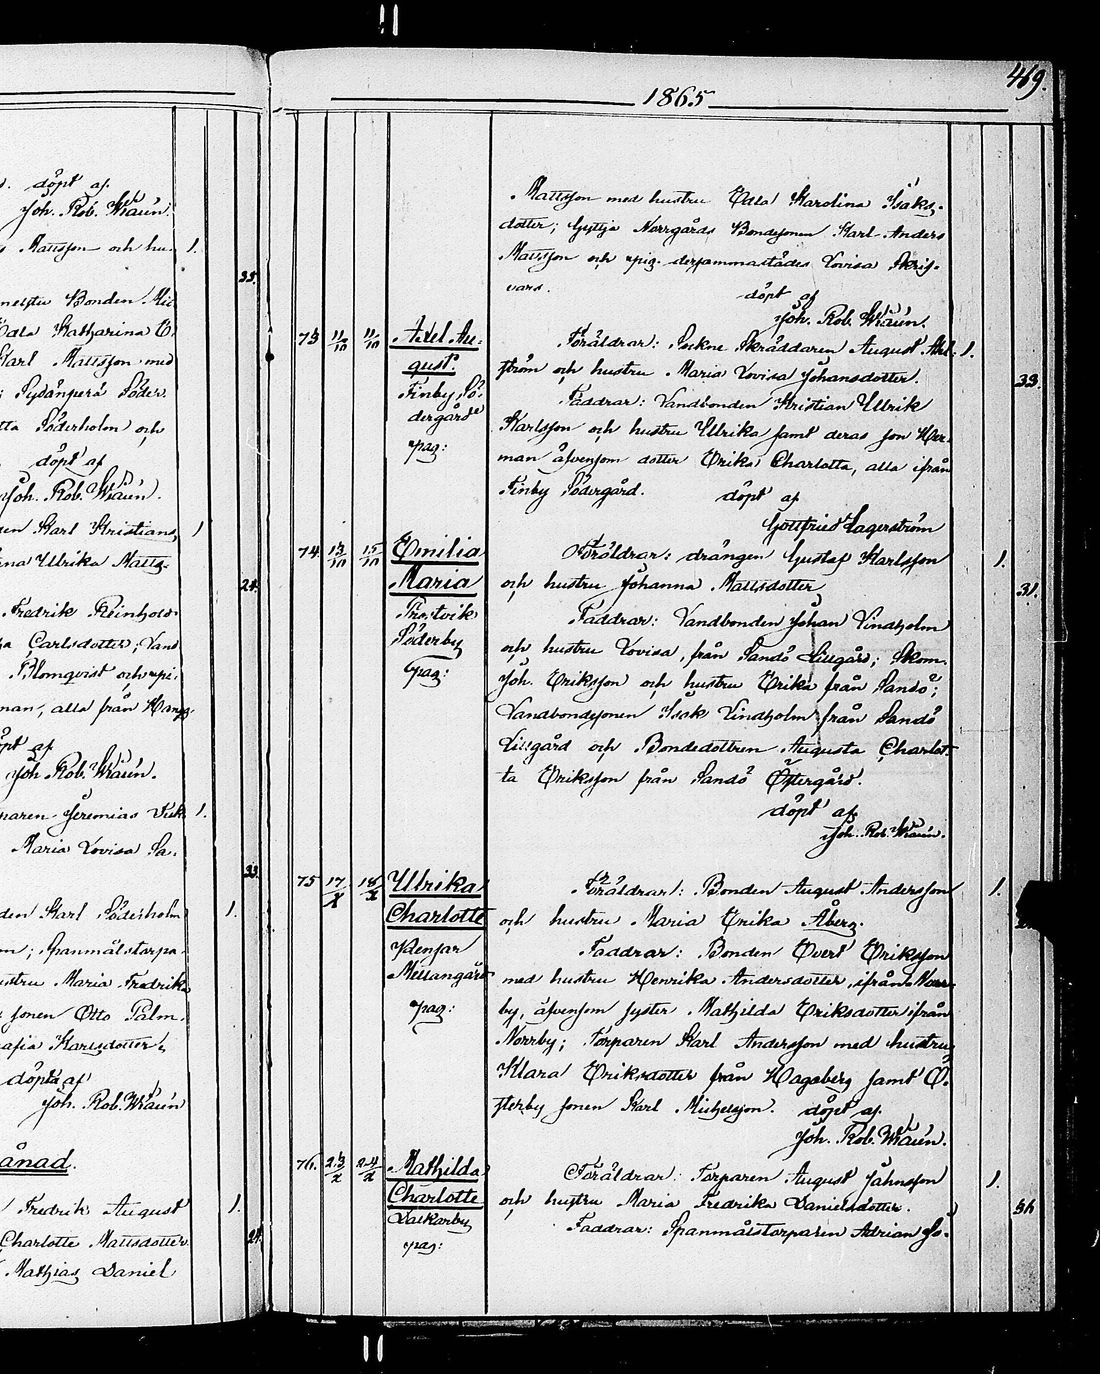 d. döpt af
Joh. Rob. Wraén.
Mattsson och hu- 1.
35.
Bonden Mi
Edla Katharina E.
Karl Mattsson med
Sydänperä Söder
Söderholm och
döpt af
Joh. Rob. Wraén.
Karl Kristians 1
Ulrika Matts-
24.
Fredrik Reinhold
Carlsdotter; Land
Blomqvist och pi-
man, alla från
döpt af
Joh Rob. Wraén.
Jeremias 1.
Maria Lovisa Sa-
33.
Karl Söderholm 1.
Spanmålstorpa-
hustru Maria Fredrika
sonen Otto Palm.
Karlsdotter;
döpta af
Joh. Rob. Wraén
ånad.
Fredrik August 1.
Charlotte Mattsdotter 24.
Mathias Daniel
469.
1865
Mattsson med hustru Edla Karolina Isaks-
dotter; Gyttja Norrgårds Bondesonen Karl Anders
Mattsson och pig. dersammastädes Lovisa Skrif-
vars. döpt af
Joh. Rob. Wraén.
73 11/10 11/10 Axel Au- Föräldrar: Sockne Skräddaren August Ahl- 1.
gust. ström och hustru Maria Lovisa Johansdotter. 33.
Finby Sö- Faddrar: Landbonden Kristian Ullrik
dergård Karlsson och hustru Ullrika samt deras son Her-
pag: man äfvensom dotter Erika Charlotta, alla ifrån
Finby Södergård. döpt af
Gottfried Lagerström
74 13/10 15/10 Emilia Föräldrar: drängen Gustaf Karlsson 1.
Maria och hustru Johanna Mattsdotter 31.
Söderby Faddrar: Landbonden Johan Lindholm
pag: och hustru Lovisa, från Sandö Lillgård; Skom.
Joh. Eriksson och hustru Erika från Sandö;
Landbondesonen Isak Lindholm från Sandö
Lillgård och Bondedottren Augusta Charlot-
ta Eriksson från Sandö Östergård.
döpt af
Joh. Rob. Wraén.
75 17/X 18/X Ulrika Föräldrar: Bonden August Andersson 1.
Charlotte och hustru Maria Erika Åberg.
Mellangård Faddrar: Bonden Evert Eriksson
pag: med hustru Henrika Andersdotter, ifrån Norr-
by, äfvensom syster Mathilda Eriksdotter ifrån
Norrby; Torparen Karl Andersson med hustru
Klara Eriksdotter från Hagaberg samt Ö-
sterby sonen Karl Michelsson. döpt af
Joh. Rob. Wraén.
76. 23/X 24/X Mathilda Föräldrar: Torparen August Johnsson 1.
Charlotte och hustru Maria Fredrika Danielsdotter. 36
Laxkarby Faddrar: Spanmålstorparen Adrian Jo-
pag: